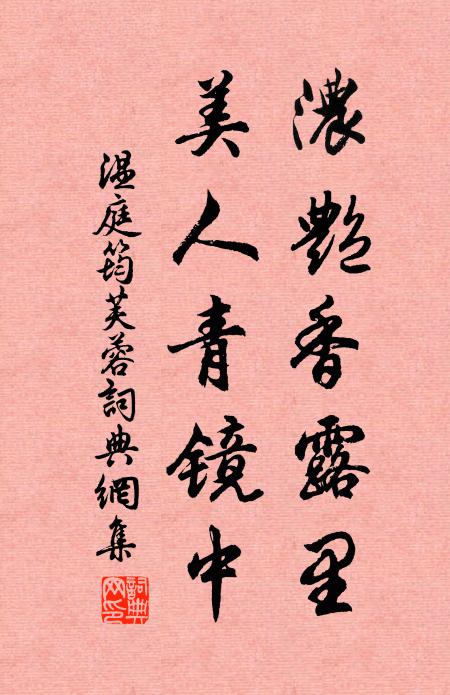 濃艷香露里
美人青鏡中
温庭筠芙蓉詞典網集
詞典網印